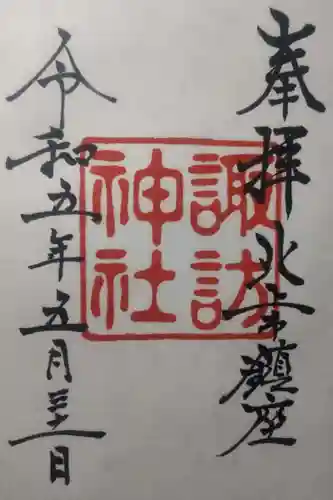 奉拝
鎮座
諏訪
神社
令和五年五月三十一日